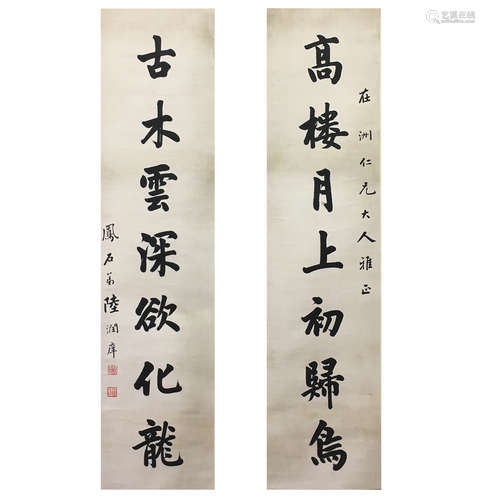 艺狐在线
在洲仁兄大人雅正
高樓月上初歸鳥
古木雲深欲化龍
鳳石弟陸潤庠